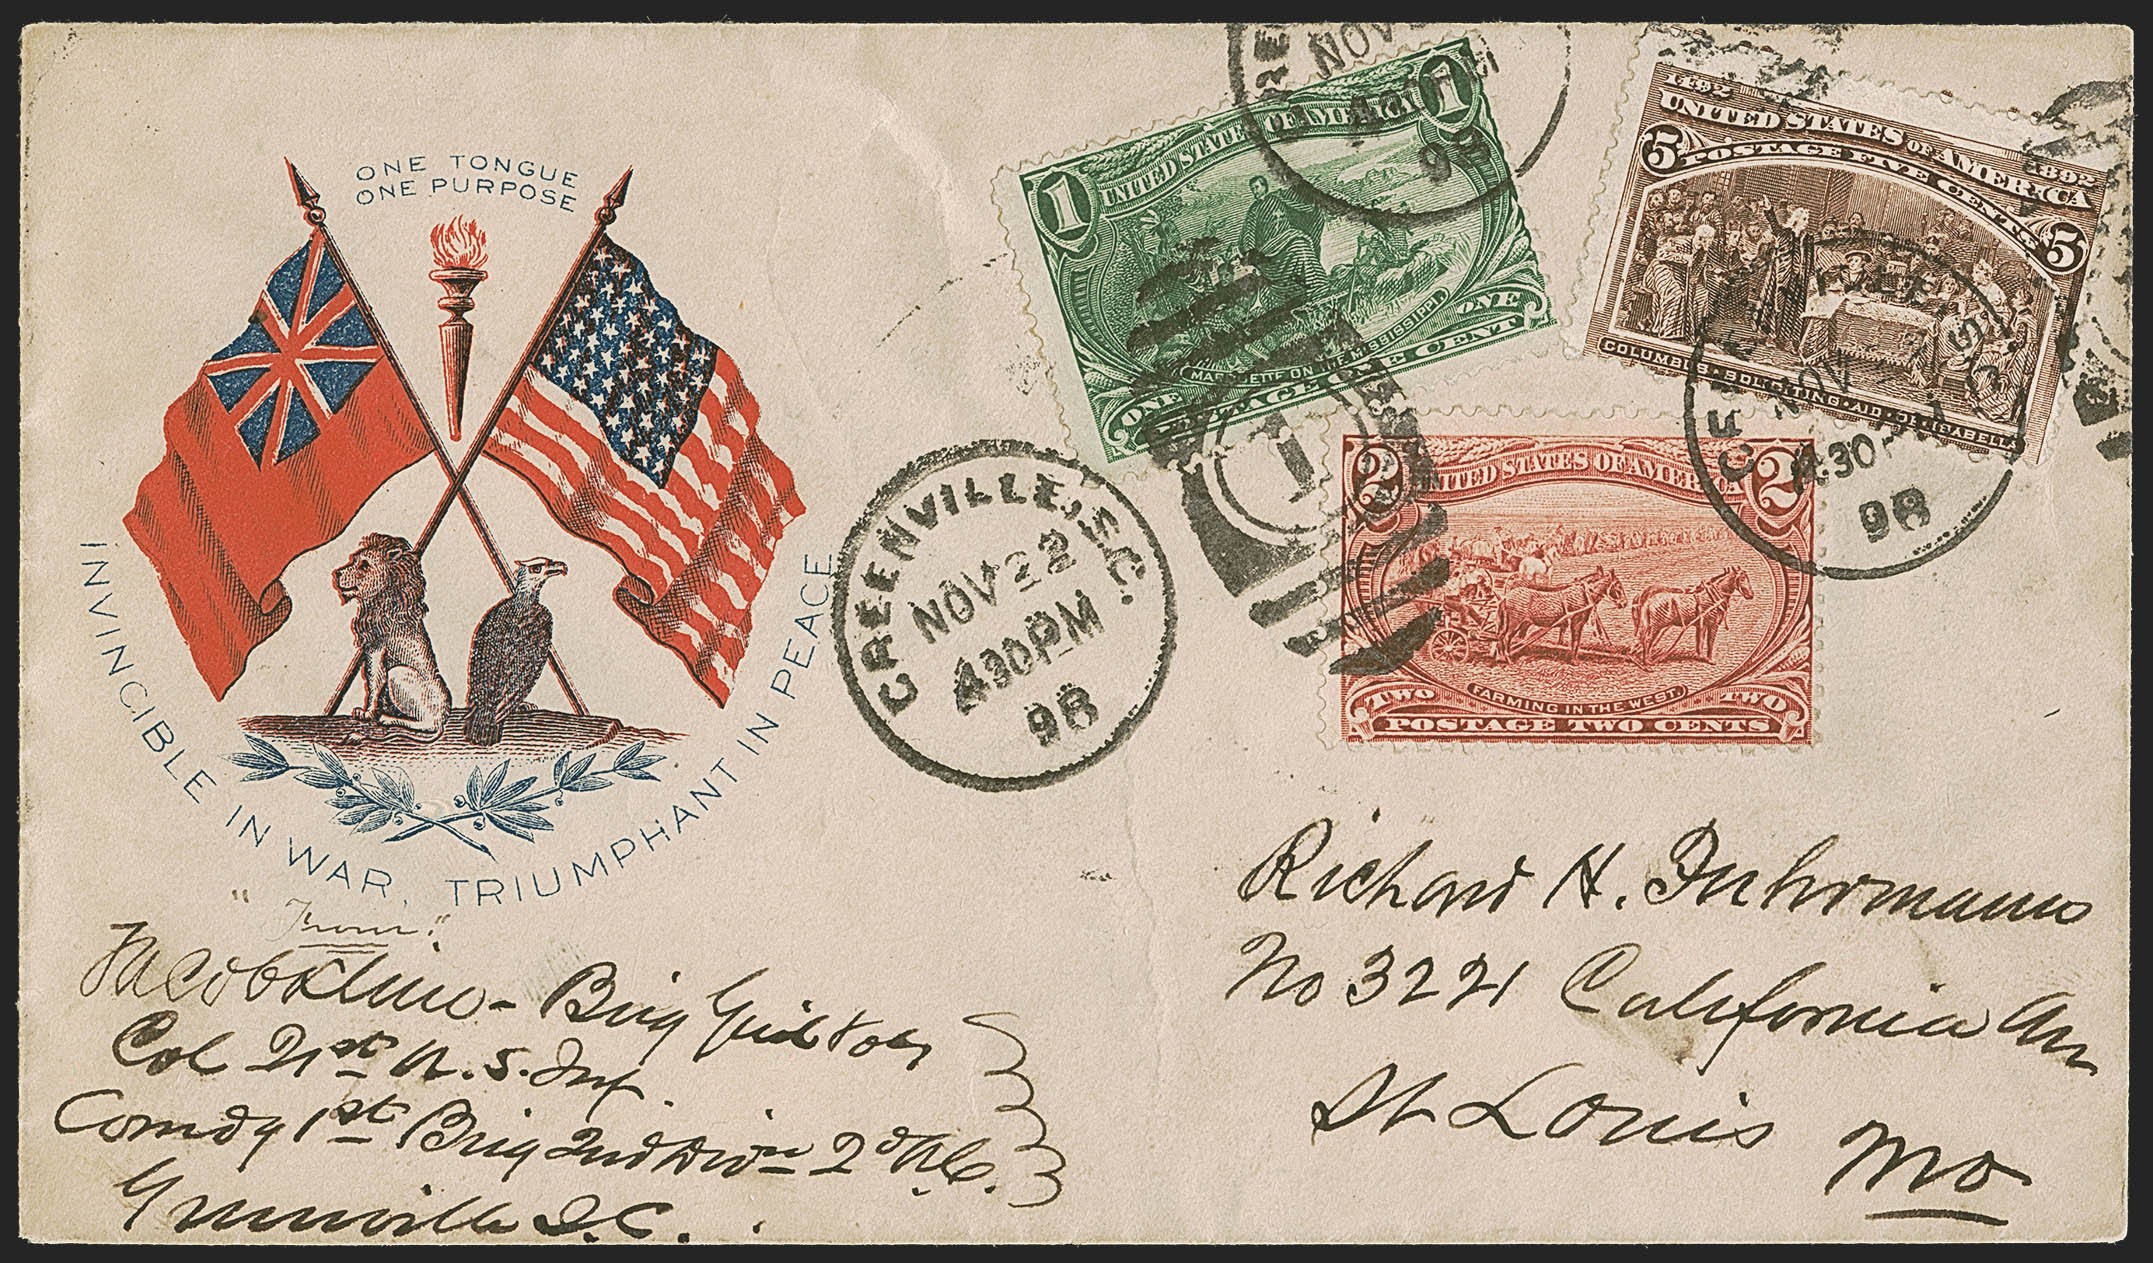 ONE TONGUE
ONE PURPOSE
INVINCIBLE IN WAR, TRIUMPHANT IN PEACE
GREENVILLE, S.C.
NOV 22
4 30 PM
98
NOV
98
1 UNITED STATES OF AMERICA 1
MARQUETTE ON THE MISSISSIPPI.
ONE ONE
POSTAGE ONE CENT
1
1492 1892
UNITED STATES OF AMERICA
5 POSTAGE FIVE CENTS 5
COLUMBUS · SOLICITING · AID · OF · ISABELLA
NOV
4.30
98
2 UNITED STATES OF AMERICA 2
FARMING IN THE WEST.
TWO TWO
POSTAGE TWO CENTS
"From"
Jacob Kline - Brig Genl Vols
Col 21st U.S. Inf
Comdg 1st Brig 2nd Divn 2d A.C.
Greenville S.C.
Richard H. Fuhrmann
No 3221 California Av
St Louis
Mo